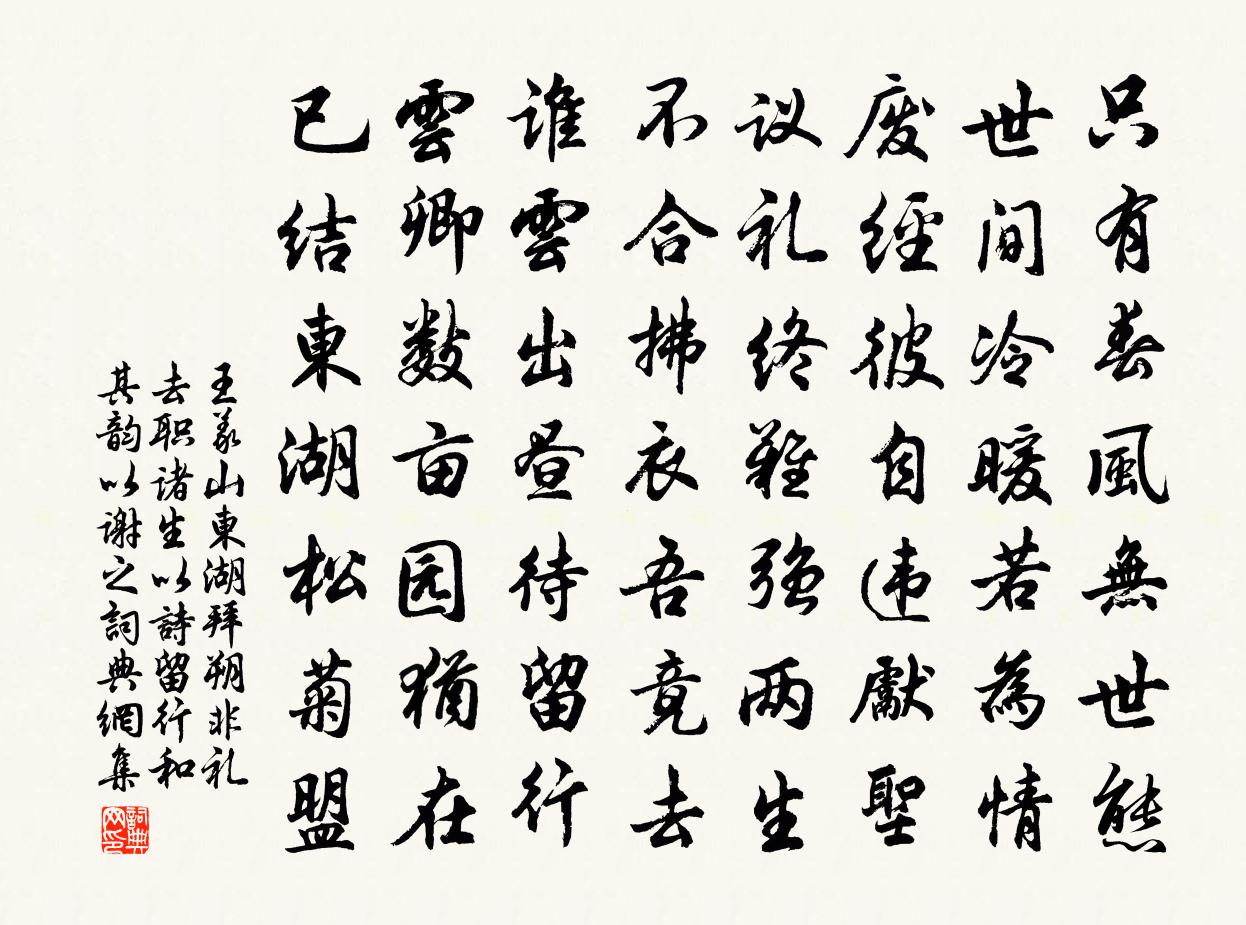 只有春風無世態
世间冷暖若為情
废經彼自违獻聖
议礼终難强两生
不合拂衣吾竟去
谁雲出昼待留行
雲卿数亩园猶在
已结東湖松菊盟
王义山東湖拜朔非礼
去职诸生以詩留行和
其韵以谢之詞典網集
詞典網印